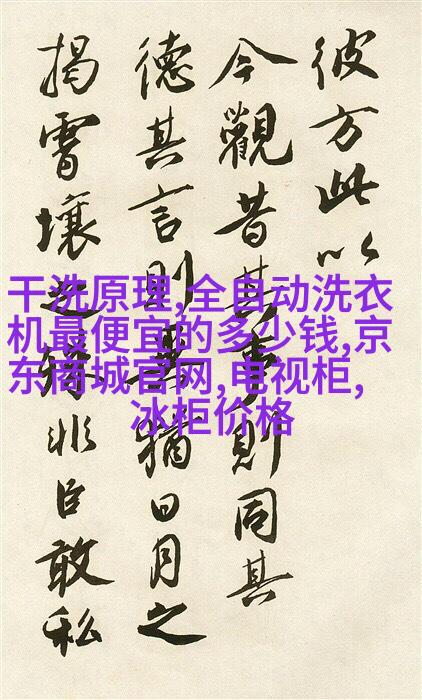 彼方此以
今觀昔其事則同其
德其言則猶日月之
揭霄壤非臣敢私
干洗原理,全自动洗衣
机最便宜的多少钱,京
东商城官网,电视柜,
冰柜价格